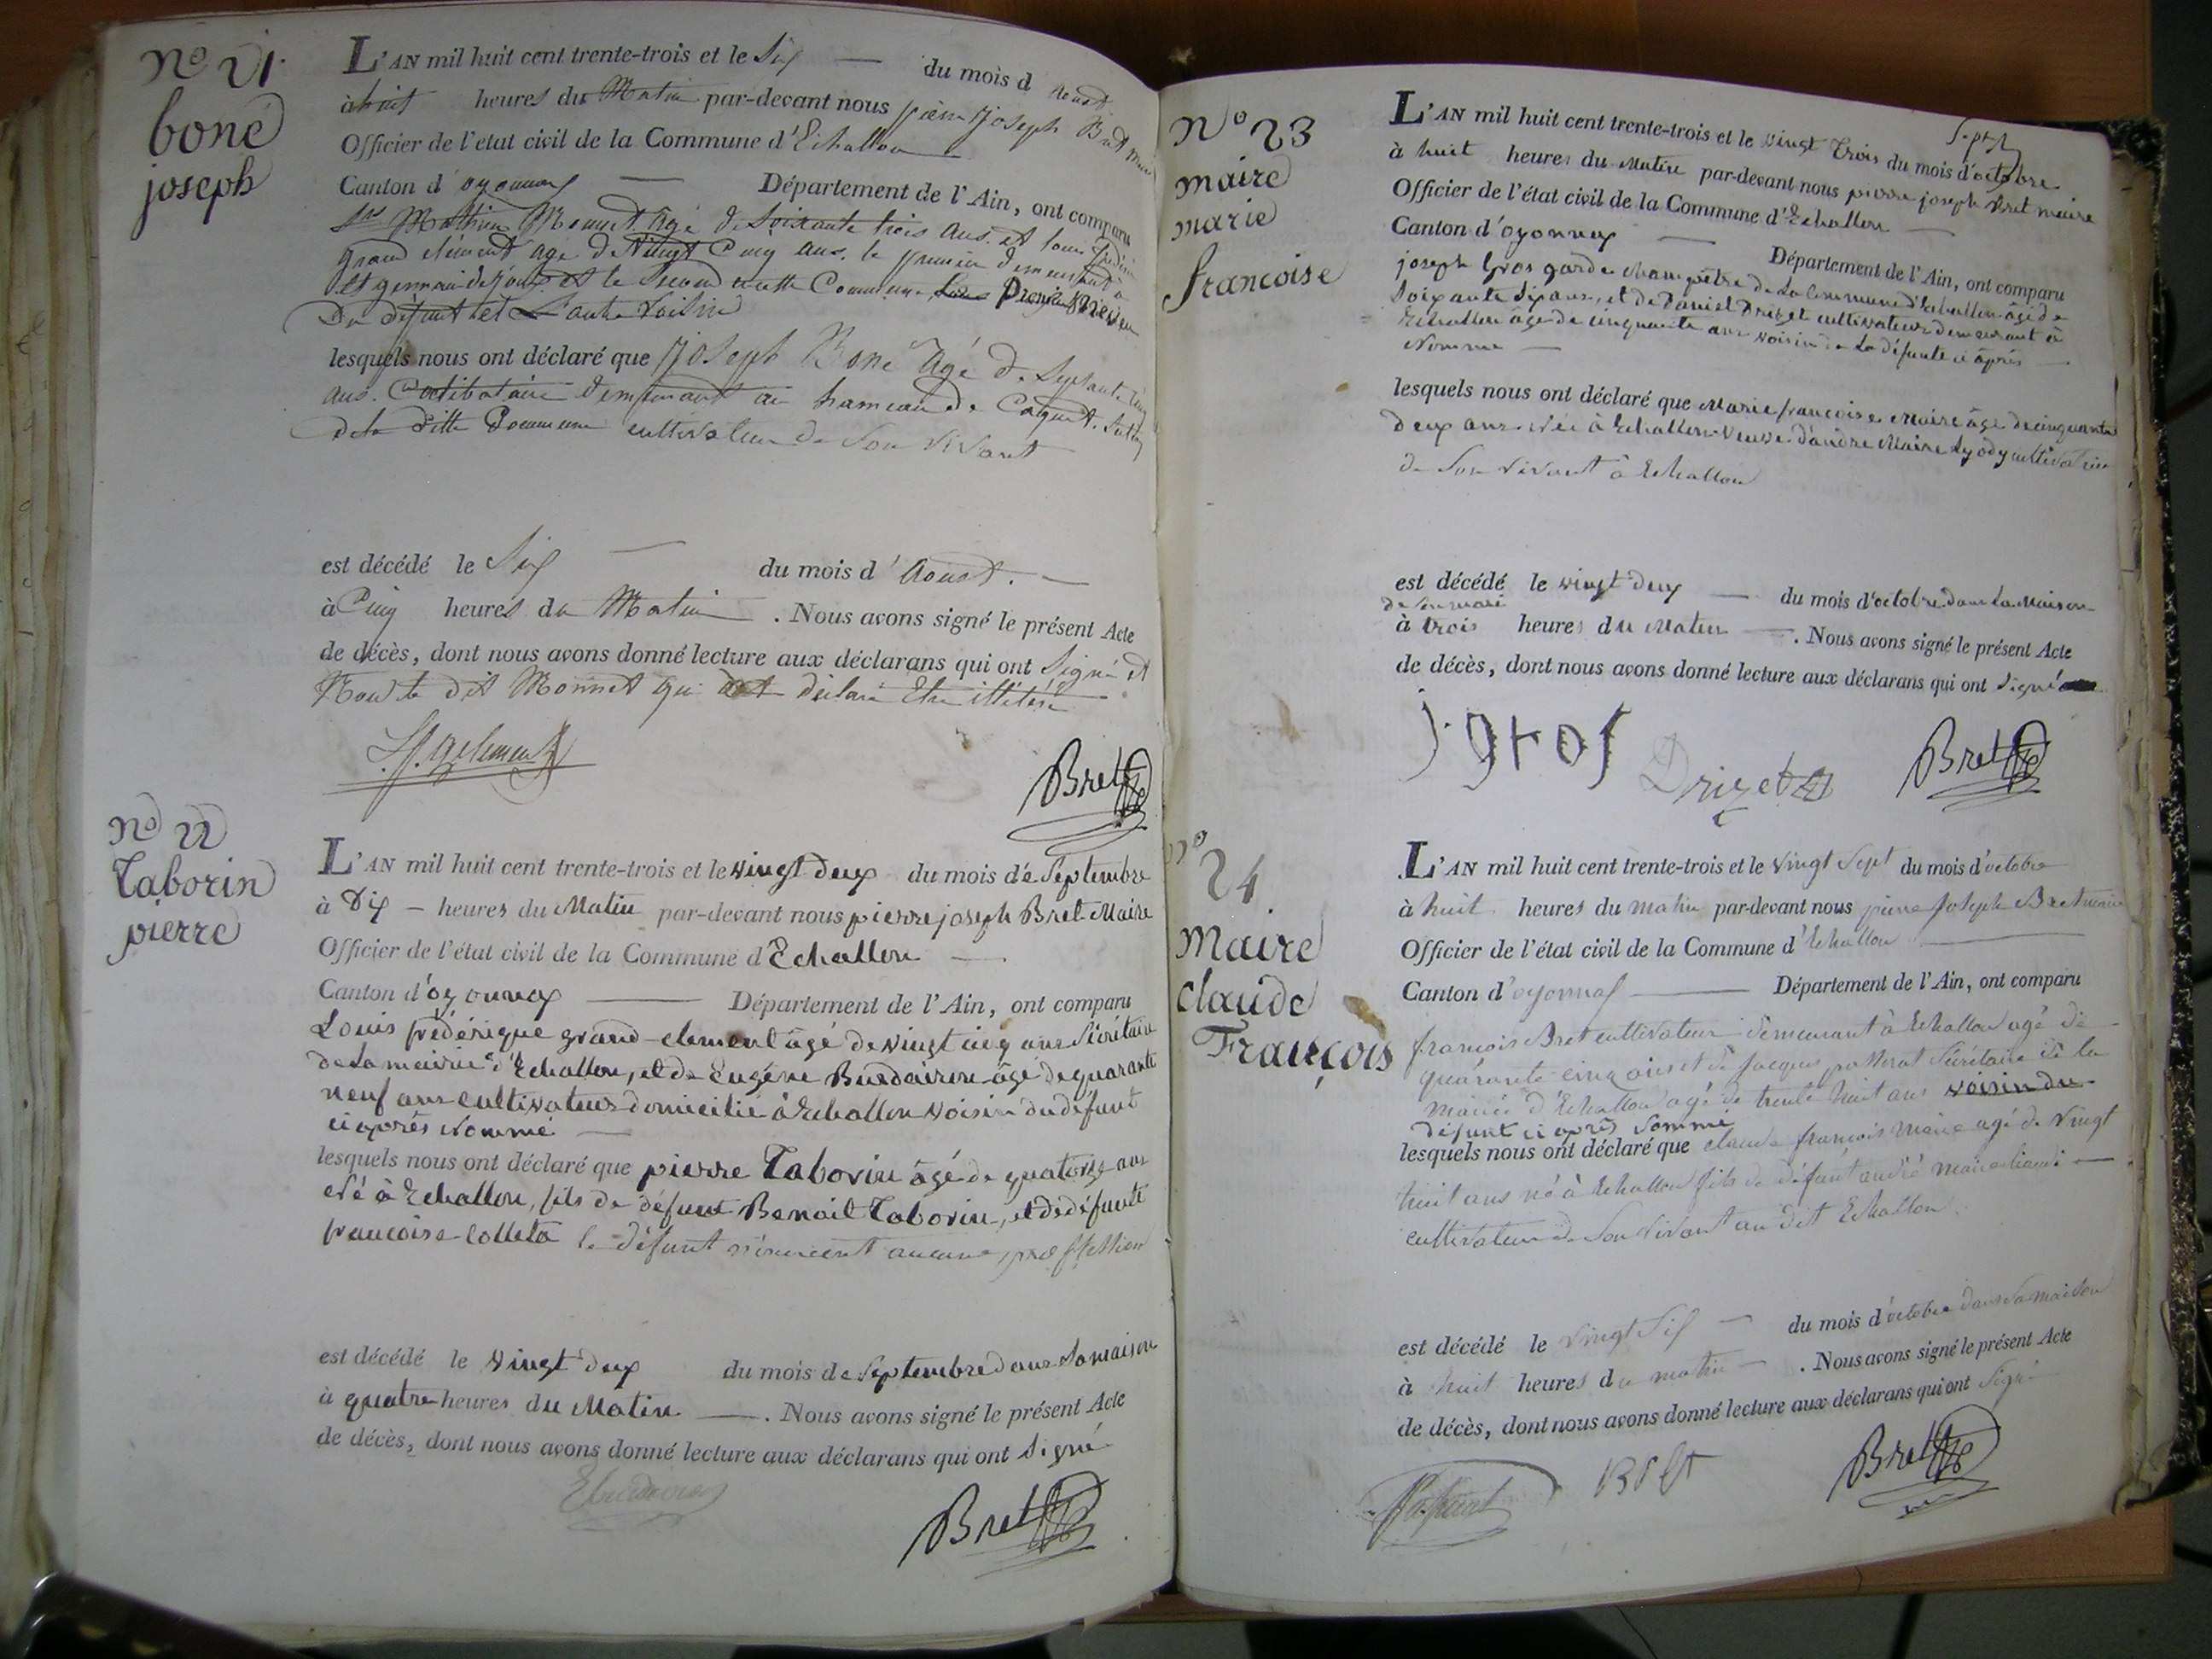 N° 21.
boné
joseph
L'AN mil huit cent trente-trois et le Six du mois d Aoust
à huit heures du Matin par-devant nous pierre joseph Bret Maire
Officier de l'etat civil de la Commune d'Echallon
Canton d'oyonnax Département de l'Ain, ont comparu
Mathieu Monnet Agé de Soixante trois ans. et louis
grand clément agé de Vingt Cinq ans. le premier demeurant à
St germain de joux et le Second cette Commune
Du défunt et L'autre Voisin
lesquels nous ont déclaré que Joseph Boné Agé de Septante
ans. Celibataire demeurant au hameau de
de la ditte Commune cultivateur de Son Vivant
est décédé le Six du mois d'Aoust.
à Cinq heures du Matin . Nous avons signé le présent Acte
de décès, dont nous avons donné lecture aux déclarans qui ont Signé et
Non le dit Monnet qui a déclaré Etre illitéré
Bret
N° 22
Taborin
pierre
L'AN mil huit cent trente-trois et le vingt deux du mois de Septembre
à Dix heures du Matin par-devant nous pierre joseph Bret Maire
Officier de l'état civil de la Commune d'Echallon
Canton d'oyonnax Département de l'Ain, ont comparu
Louis frédérique grand-clement âgé de vingt cinq ans Sécrétaire
de la mairie d'Echallon, et de Eugéne Burdairon âgé de quarante
neuf ans cultivateur domicilié à Echallon voisin du défunt
ci après nommé
lesquels nous ont déclaré que pierre Taborin âgé de quatorze ans
né à Echallon, fils de défunt Benoit Taborin, et de défunte
francoise Colleta le défunt n'exercent aucune proffession
est décédé le vingt deux du mois de Septembre dans Sa maison
à quatre heures du Matin . Nous avons signé le présent Acte
de décès, dont nous avons donné lecture aux déclarans qui ont Signé
Bret
N° 23
maire
marie
francoise
L'AN mil huit cent trente-trois et le vingt trois du mois d'octobre
à huit heures du Matin par-devant nous pierre joseph Bret maire
Officier de l'état civil de la Commune d'Echallon
Canton d'oyonnax Département de l'Ain, ont comparu
joseph Gros garde champêtre de la Commune d'Echallon âgé de
Soixante Six ans, et de Daniel Drizet cultivateur demeurant à
Echallon âgé de cinquante ans voisin de la défunte ci après
Nommé
lesquels nous ont déclaré que Marie francoise Maire âgé de cinquante
deux ans née à Echallon Veuve d'andre Maire cultivatrice
de Son vivant à Echallon
est décédé le vingt deux du mois d'octobre dans la Maison
de Son mari
à trois heures du Matin . Nous avons signé le présent Acte
de décès, dont nous avons donné lecture aux déclarans qui ont Signé
j. gros Drizet Bret
N° 24
Maire
claude
François
L'AN mil huit cent trente-trois et le Vingt Sept du mois d'octobre
à huit heures du matin par-devant nous pierre Joseph Bret maire
Officier de l'état civil de la Commune d'Echallon
Canton d'oyonnax Département de l'Ain, ont comparu
françois Bret cultivateur demeurant à Echallon agé de
quarante cinq ans et de Jacques Sécrétaire de la
mairie d'Echallon agé de trente huit ans voisin du
défunt ci après Nommé
lesquels nous ont déclaré que claude françois Maire agé de Vingt
huit ans né à Echallon fils de défunt andré maire
cultivateur de Son Vivant au dit Echallon
est décédé le Vingt Six du mois d'octobre dans Sa maison
à huit heures du matin . Nous avons signé le présent Acte
de décès, dont nous avons donné lecture aux déclarans qui ont Signé
Bret